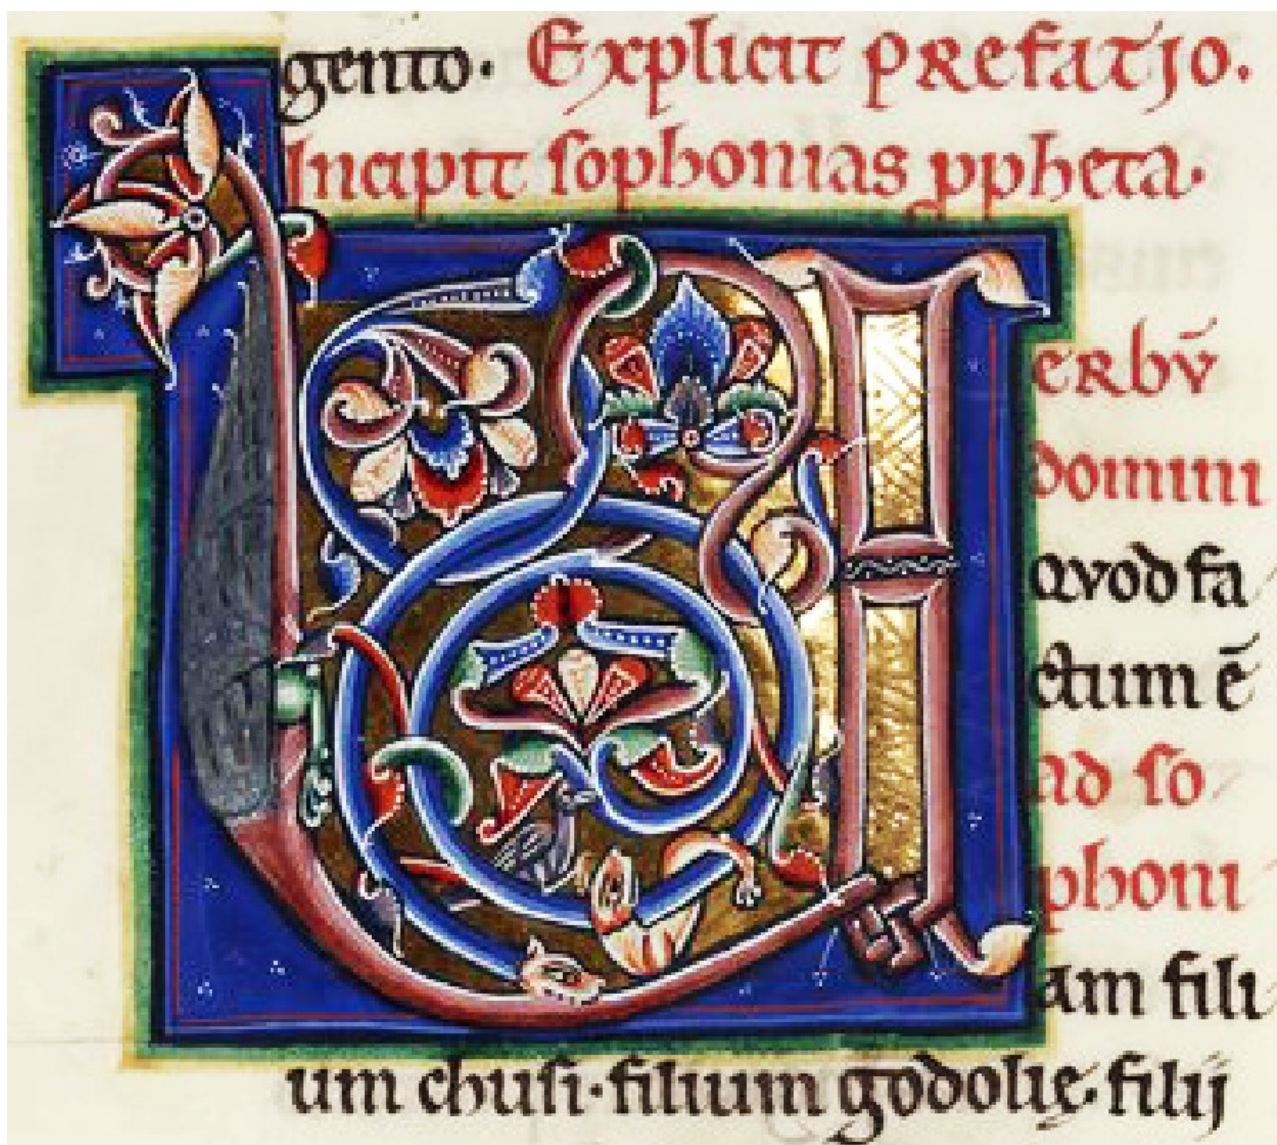 gento. Explicit prefatjo.
Incipit sophonias ppheta.
erbū
domini
Qvod fa
ctum ē
ad so
phoni
am fili
um chusi. filium godolię. filij